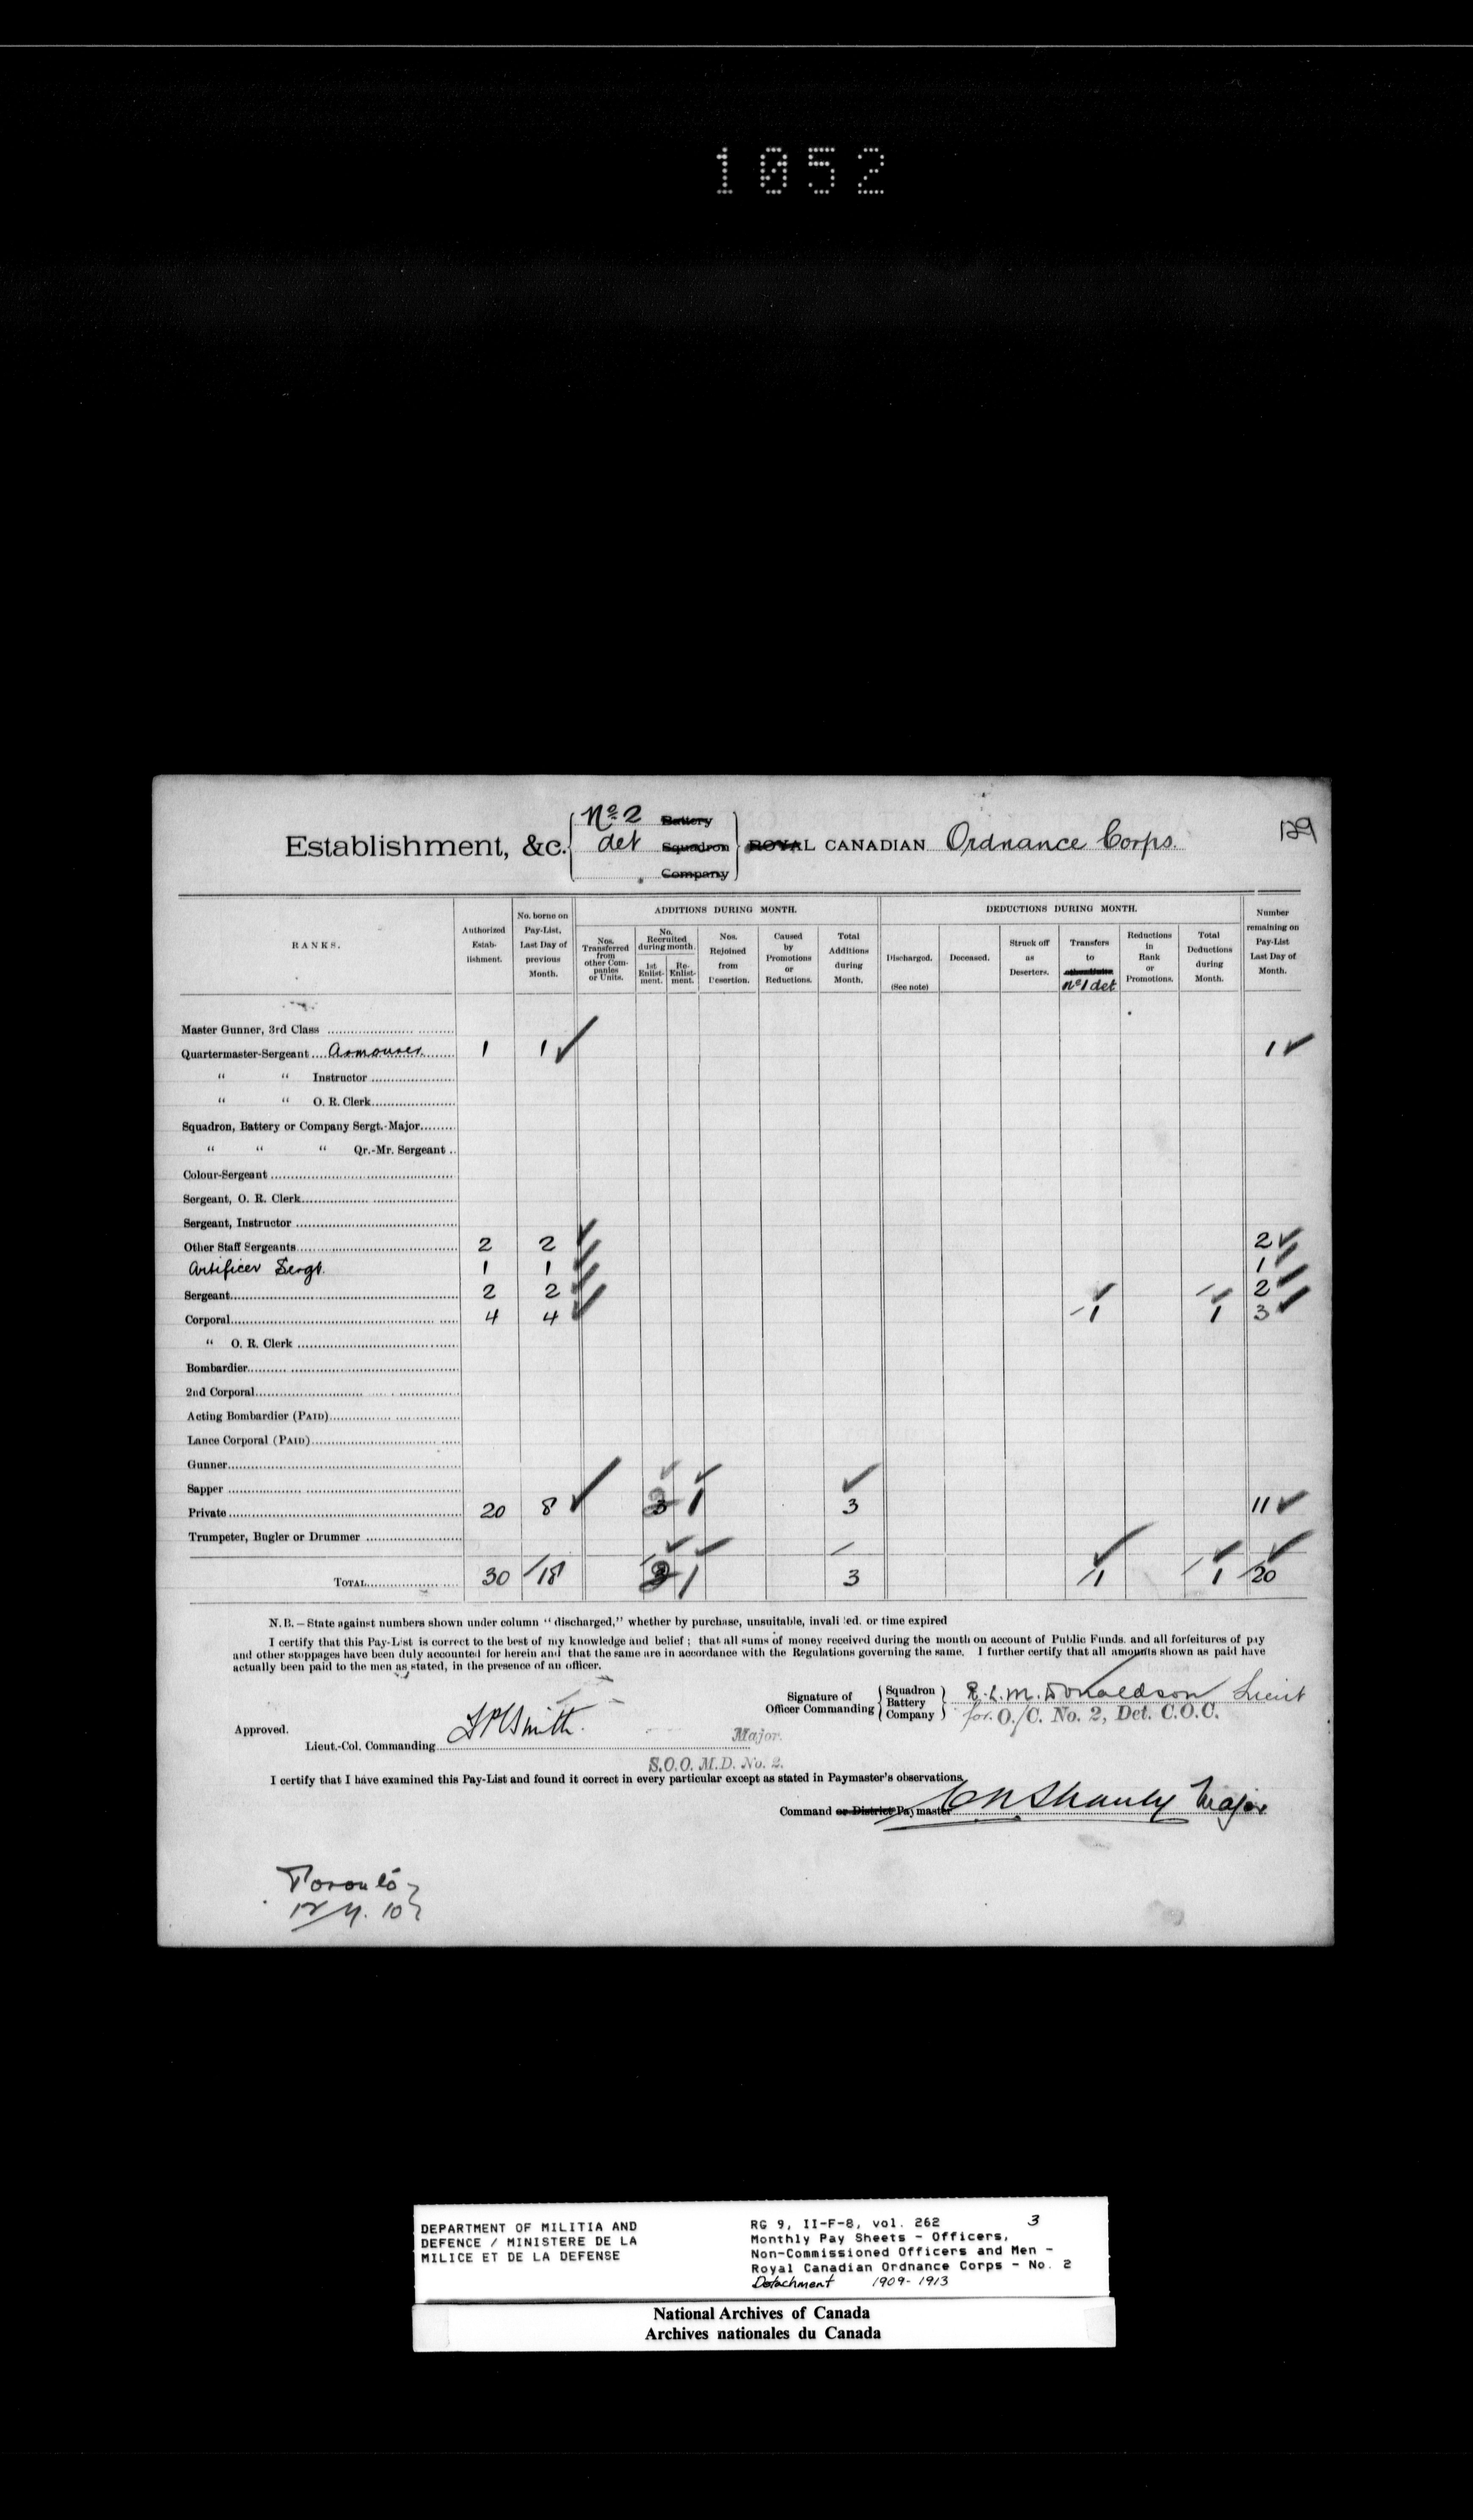 1052
129
Establishment, &c. No. 2 det Battery Squadron Company ROYAL CANADIAN Ordnance Corps.
RANKS. Authorized Establishment. No. borne on Pay-List, Last Day of previous Month. ADDITIONS DURING MONTH. DEDUCTIONS DURING MONTH. Number remaining on Pay-List Last Day of Month.
Nos. Transferred from other Companies or Units. No. Recruited during month. 1st Enlistment. Re-Enlistment. Nos. Rejoined from Desertion. Caused by Promotions or Reductions. Total Additions during Month. Discharged. (See note) Deceased. Struck off as Deserters. Transfers to No 1 det Reductions in Rank or Promotions. Total Deductions during Month.
Master Gunner, 3rd Class
Quartermaster-Sergeant Armourer 1 1 1
" " Instructor
" " O. R. Clerk
Squadron, Battery or Company Sergt.-Major
" " " Qr.-Mr. Sergeant
Colour-Sergeant
Sergeant, O. R. Clerk
Sergeant, Instructor
Other Staff Sergeants 2 2 2
Artificer Sergt. 1 1 1
Sergeant 2 2 2
Corporal 4 4 1 1 3
" O. R. Clerk
Bombardier
2nd Corporal
Acting Bombardier (PAID)
Lance Corporal (PAID)
Gunner
Sapper
Private 20 8 1 3 11
Trumpeter, Bugler or Drummer
TOTAL 30 18 1 3 1 1 20
N.B.—State against numbers shown under column "discharged," whether by purchase, unsuitable, invalided. or time expired
I certify that this Pay-List is correct to the best of my knowledge and belief; that all sums of money received during the month on account of Public Funds. and all forfeitures of pay
and other stoppages have been duly accounted for herein and that the same are in accordance with the Regulations governing the same. I further certify that all amounts shown as paid have
actually been paid to the men as stated, in the presence of an officer.
Signature of Officer Commanding Squadron Battery Company R. L. M. Donaldson Lieut
for O./C. No. 2, Det. C.O.C.
Approved.
Lieut.-Col. Commanding Smith. Major.
S.O.O. M.D. No. 2.
I certify that I have examined this Pay-List and found it correct in every particular except as stated in Paymaster's observations.
Command or District Paymaster C N Shanly Major
Toronto
DEPARTMENT OF MILITIA AND
DEFENCE / MINISTERE DE LA
MILICE ET DE LA DEFENSE
RG 9, II-F-8, vol. 262 3
Monthly Pay Sheets - Officers,
Non-Commissioned Officers and Men -
Royal Canadian Ordnance Corps - No. 2
Detachment 1909-1913
National Archives of Canada
Archives nationales du Canada